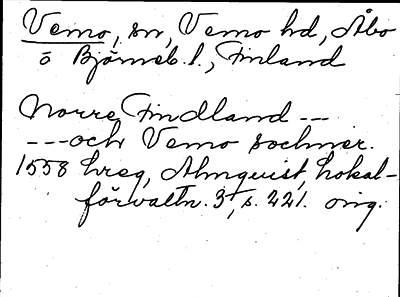 Vemo, sn, Vemo hd, Åbo
o Björneb. l., Finland
Norre Findland ---
--- och Vemo sochner.
1558 hreg, Almquist, Lokal-
förvaltn. 3, s. 221. orig.